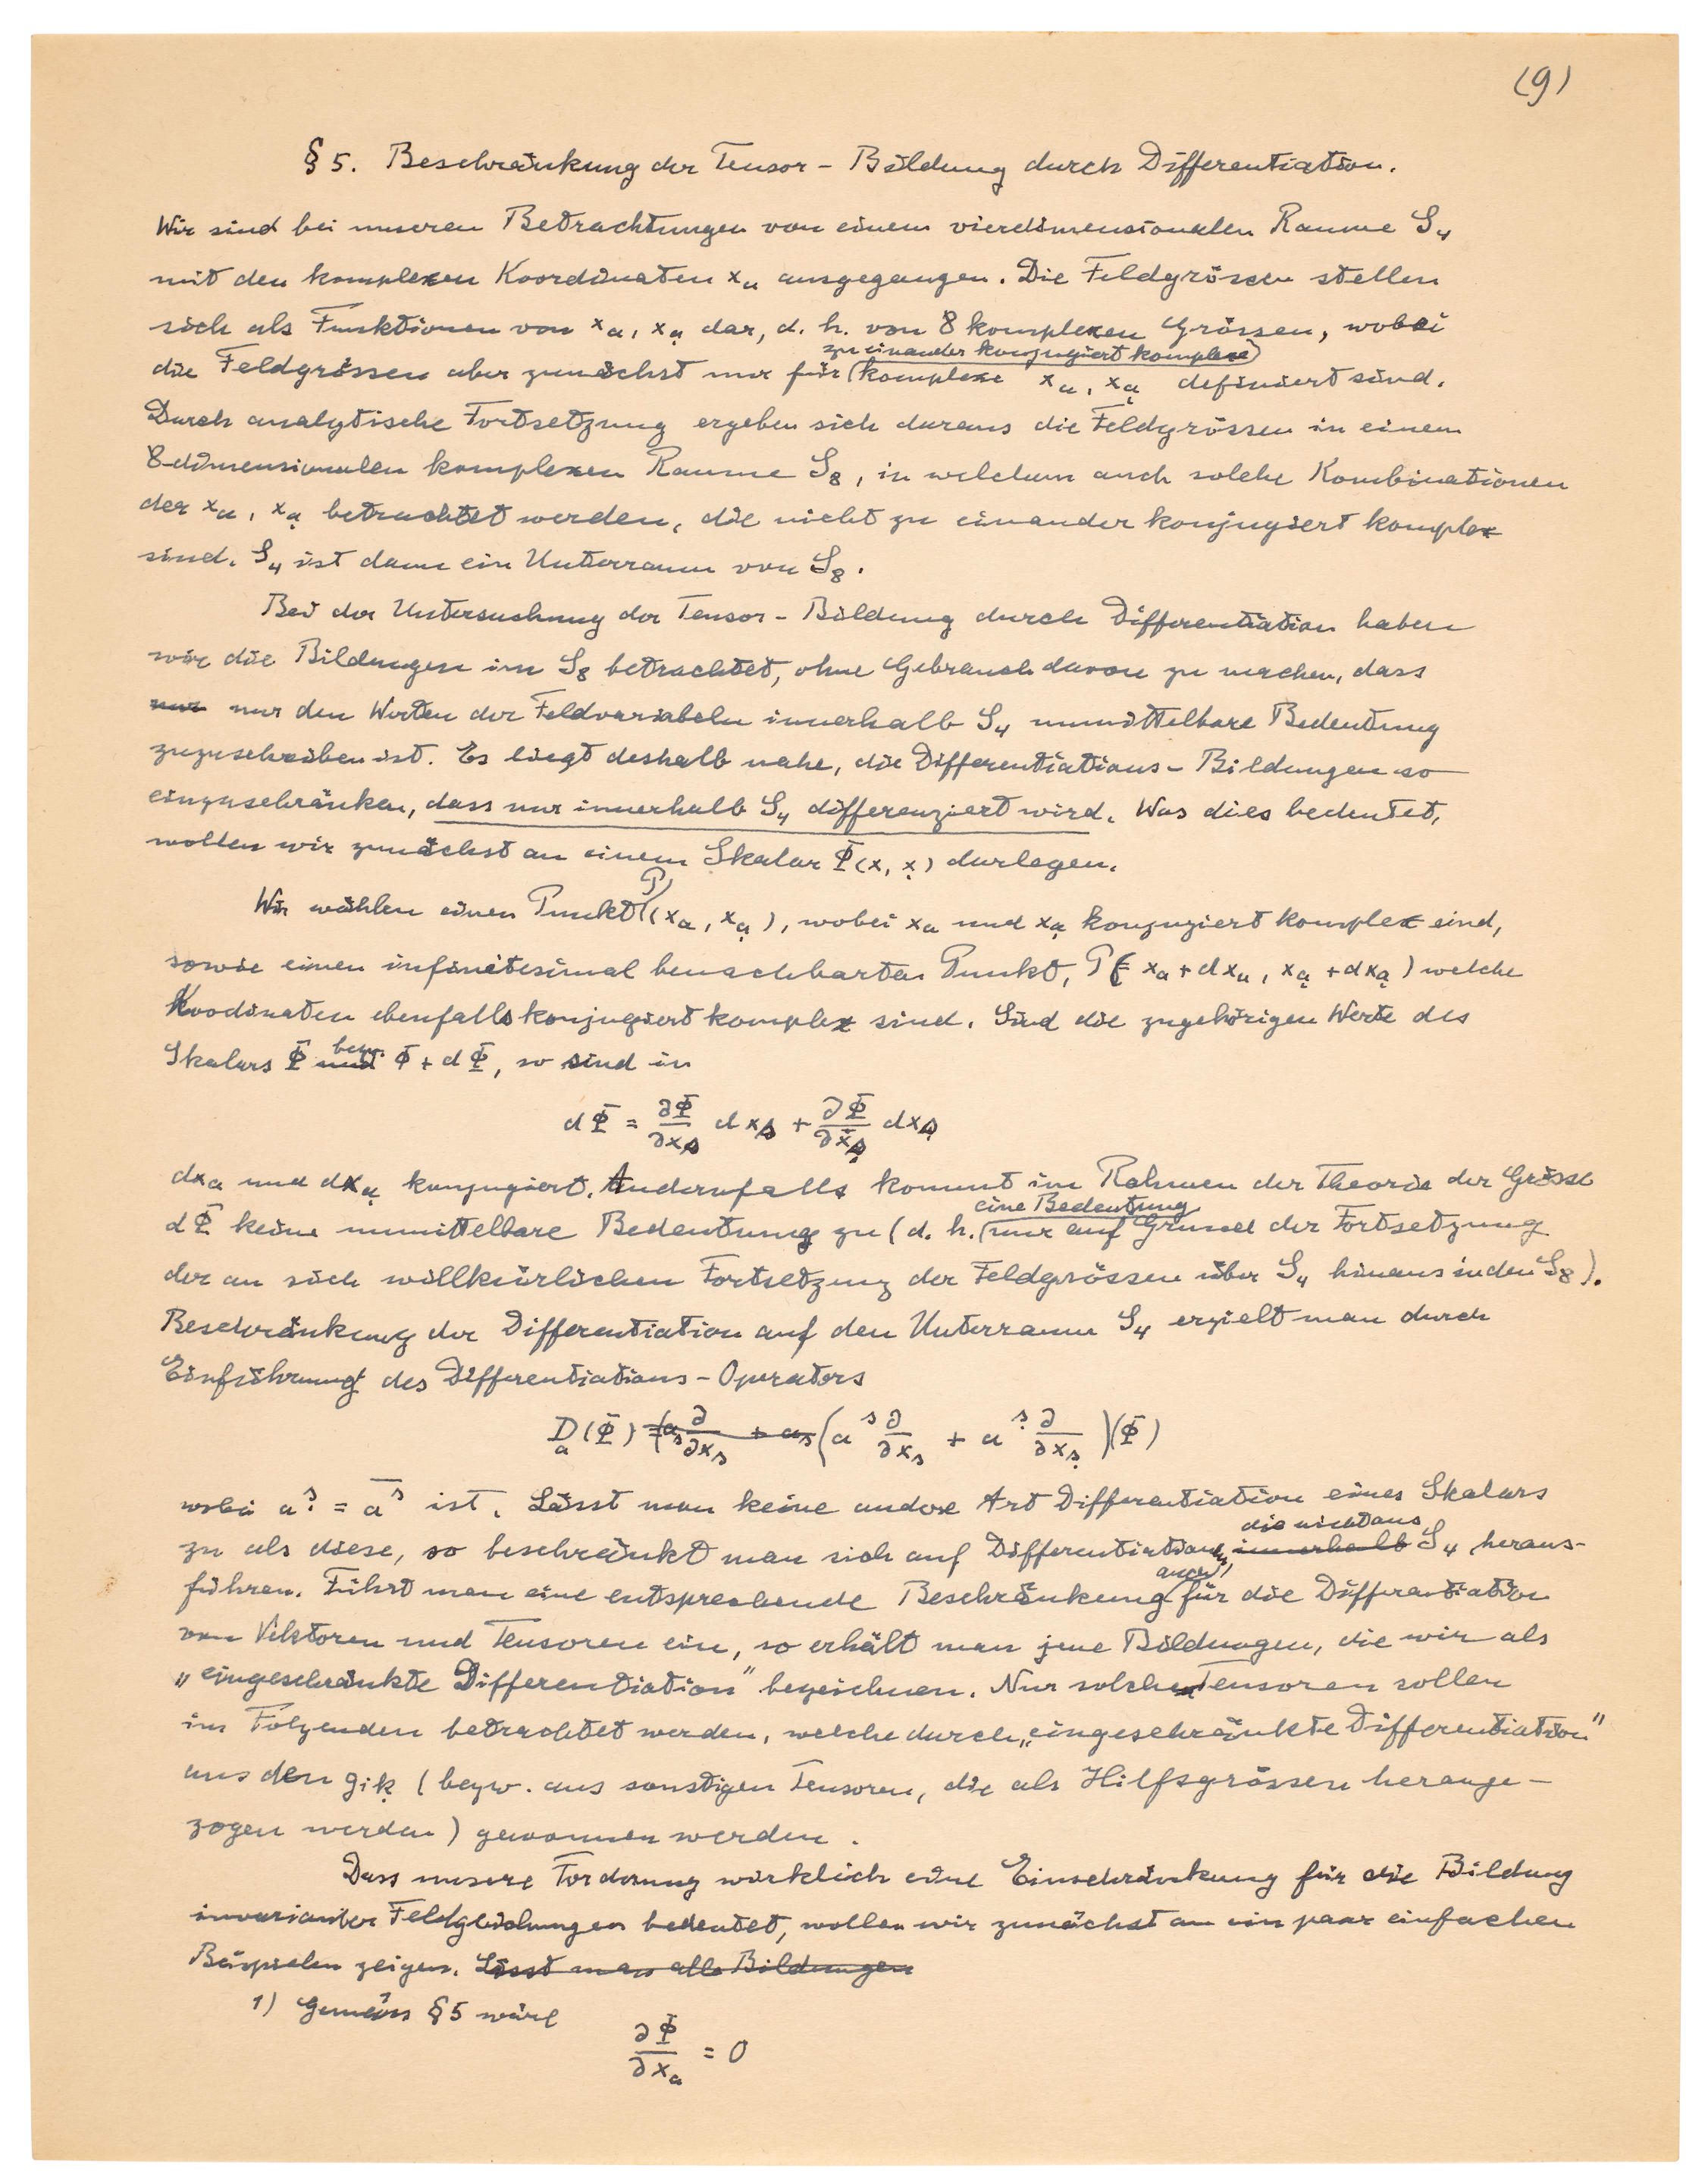 (9)
§ 5. Beschränkung der Tensor - Bildung durch Differentiation.
Wir sind bei unseren Betrachtungen von einem vierdimensionalen Raume S₄
mit den komplexen Koordinaten xₐ ausgegangen. Die Feldgrössen stellen
sich als Funktionen von xₐ, xₐ̣ dar, d. h. von 8 komplexen Grössen, wobei
zu einander konjugiert komplexe
die Feldgrössen aber zunächst nur für komplexe xₐ, xₐ̣ definiert sind.
Durch analytische Fortsetzung ergeben sich daraus die Feldgrössen in einem
8-dimensionalen komplexen Raume S₈, in welchem auch solche Kombinationen
der xₐ, xₐ̣ betrachtet werden, die nicht zu einander konjugiert komplex
sind. S₄ ist dann ein Unterraum von S₈.
Bei der Untersuchung der Tensor - Bildung durch Differentiation haben
wir die Bildungen im S₈ betrachtet, ohne Gebrauch davon zu machen, dass
nur nur den Werten der Feldvariabeln innerhalb S₄ unmittelbare Bedeutung
zuzuschreiben ist. Es liegt deshalb nahe, die Differentiations - Bildungen so
einzuschränken, dass nur innerhalb S₄ differenziert wird. Was dies bedeutet,
wollen wir zunächst an einem Skalar Φ(x, x̣) darlegen.
Wir wählen einen Punkt P(xₐ, xₐ̣), wobei xₐ und xₐ̣ konjugiert komplex sind,
sowie einen infinitesimal benachbarten Punkt, P(xₐ + dxₐ, xₐ̣ + dxₐ̣) welche
Koodinaten ebenfalls konjugiert komplex sind. Sind die zugehörigen Werte des
Skalars Φ und bezw. Φ + dΦ, so sind in
dΦ = ∂Φ/∂xₛ dxₛ + ∂Φ/∂xₛ̣ dxₛ̣
dxₐ und dxₐ̣ konjugiert. Andernfalls kommt im Rahmen der Theorie der Grösse
eine Bedeutung
dΦ keine unmittelbare Bedeutung zu (d. h. nur auf Grund der Fortsetzung
der an sich willkürlichen Fortsetzung der Feldgrössen über S₄ hinaus in den S₈).
Beschränkung der Differentiation auf den Unterraum S₄ erzielt man durch
Einführung des Differentiations - Operators
Dₐ(Φ) = (aₛ ∂/∂xₛ + aₛ (aˢ ∂/∂xₛ + aˢ̣ ∂/∂xₛ̣)(Φ)
wobei aˢ̣ = a̅ˢ ist. Lässt man keine andere Art Differentiation eines Skalars
die nicht aus
zu als diese, so beschränkt man sich auf Differentiationen, innerhalb S₄ heraus-
auch
führen. Führt man eine entsprechende Beschränkung für die Differentiation
von Vektoren und Tensoren ein, so erhält man jene Bildungen, die wir als
„eingeschränkte Differentiation" bezeichnen. Nur solche Tensoren sollen
im Folgenden betrachtet werden, welche durch „eingeschränkte Differentiation"
aus den gᵢₖ̣ (bezw. aus sonstigen Tensoren, die als Hilfsgrössen herange-
zogen werden) gewonnen werden.
Dass unsere Forderung wirklich eine Einschränkung für die Bildung
invarianter Feldgleichungen bedeutet, wollen wir zunächst an ein paar einfachen
Beispielen zeigen. Lässt man alle Bildungen
1) Gemäss § 5 wäre
∂Φ/∂xₐ = 0